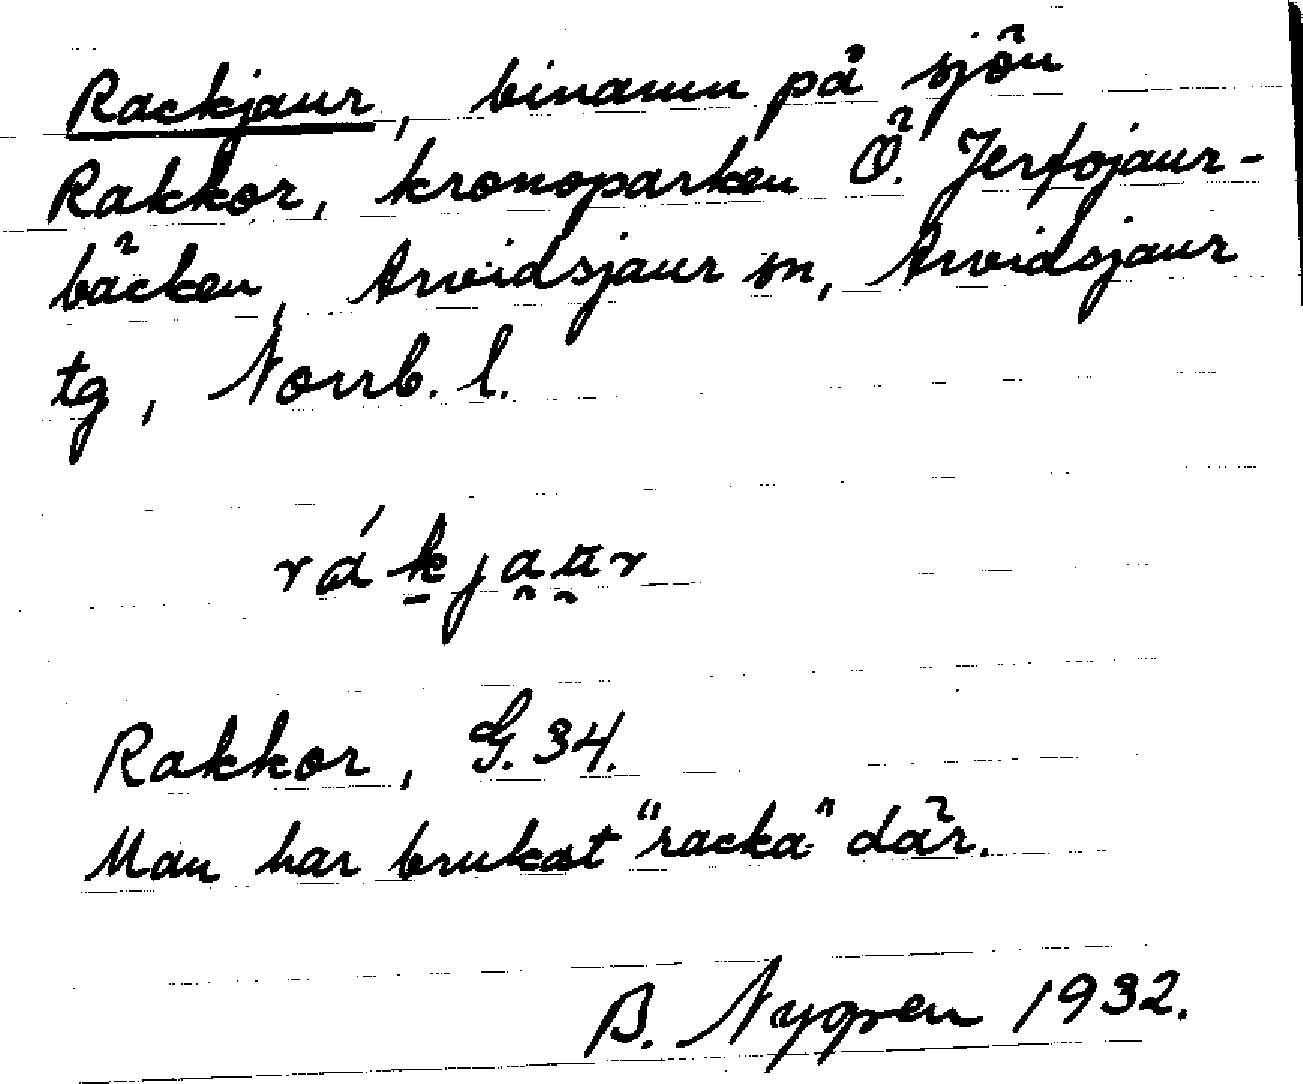 Rackjaur, binamn på sjön
Rakkor, kronoparken Ö. Jerfojaur-
bäcken, Arvidsjaur sn, Arvidsjaur
tg, Norrb. l.
rákjau̯r
Rakkor, G. 34.
Man har brukat "racka" där.
B. Nygren 1932.